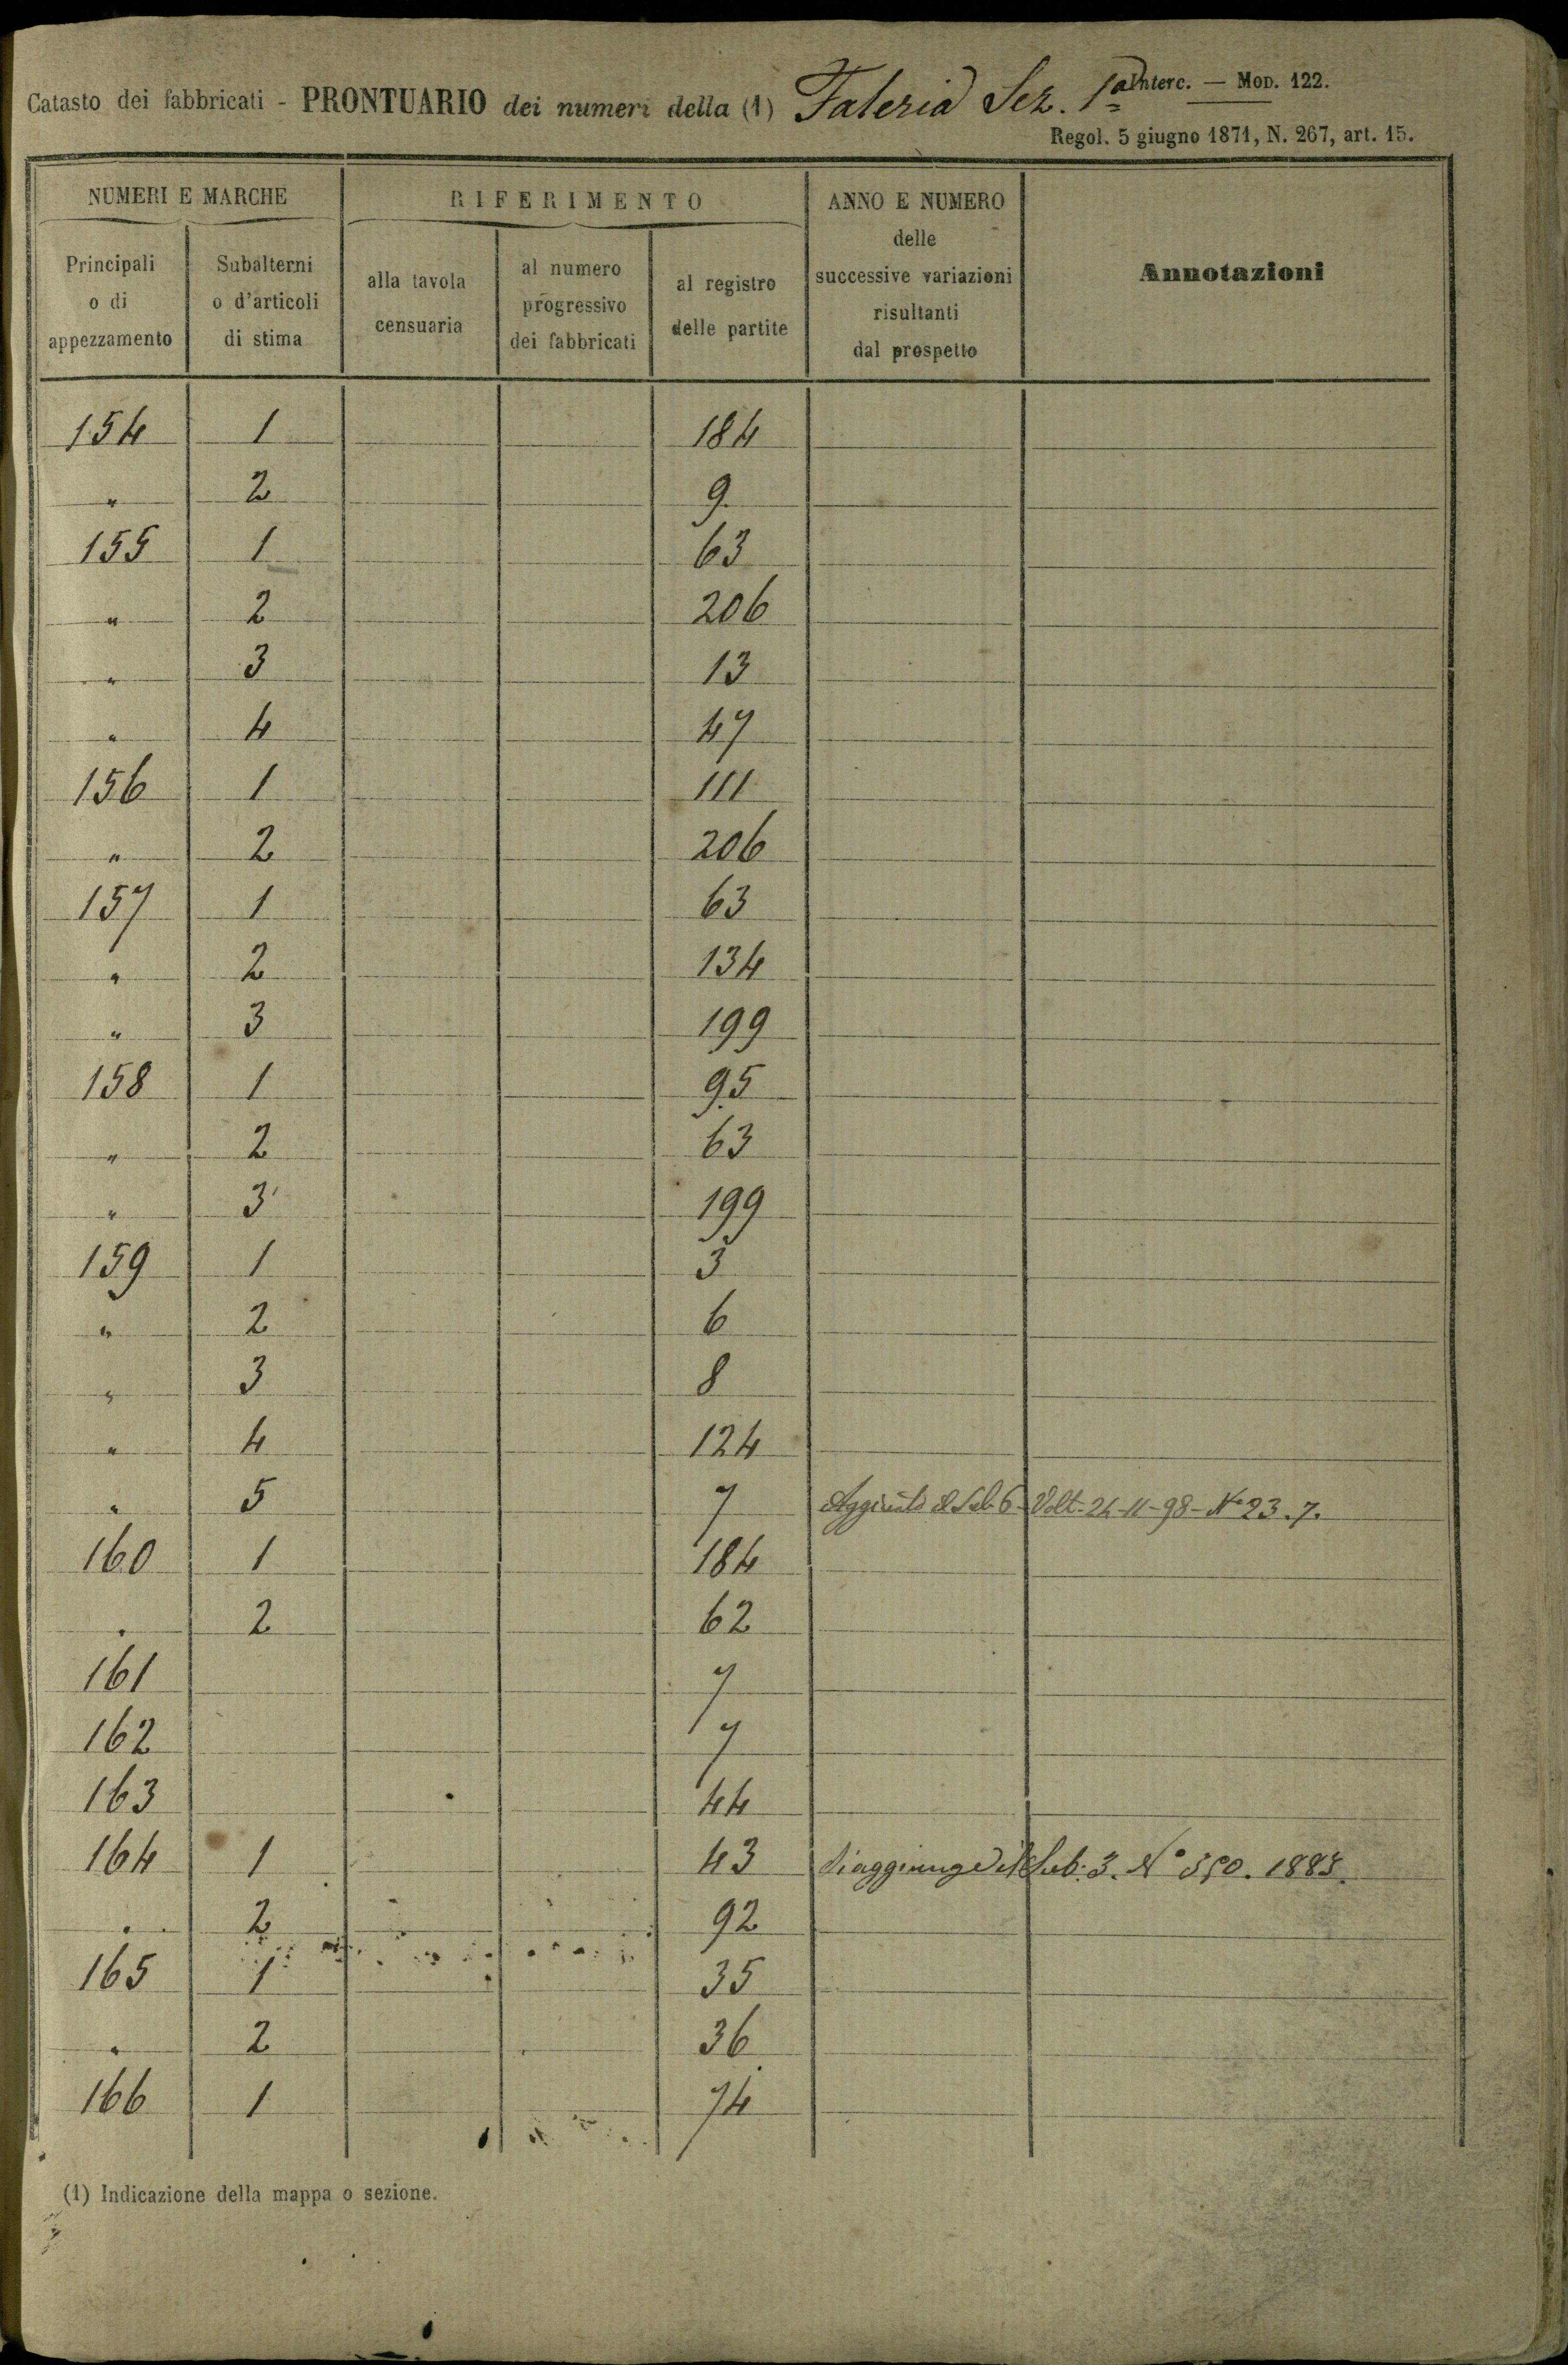 Catasto dei fabbricati - PRONTUARIO dei numeri della (1) Faleria Sez. 1ª Interc. — Mod. 122.
Regol. 5 giugno 1871, N. 267, art. 15.
NUMERI E MARCHE RIFERIMENTO ANNO E NUMERO delle successive variazioni risultanti dal prospetto Annotazioni
Principali o di appezzamento Subalterni o d'articoli di stima alla tavola censuaria al numero progressivo dei fabbricati al registro delle partite
154 1 184
" 2 9.
155 1 63
" 2 206
" 3 13
" 4 47
156 1 111
" 2 206
157 1 63
" 2 134
" 3 199
158 1 95
" 2 63
" 3 199
159 1 3
" 2 6
" 3 8
" 4 124
" 5 7 Aggiunto il Sub 6 - Volt. 24-11-98 - N° 23.7.
160 1 184
" 2 62
161 7
162 7
163 44
164 1 43 Si aggiunge il Sub: 3. N° 1883.
" 2 92
165 1 35
" 2 36
166 1 74
(1) Indicazione della mappa o sezione.